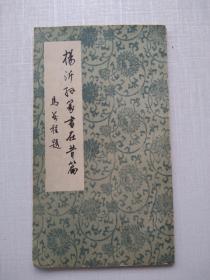 楊沂孫篆書在昔篇
馬公愚題